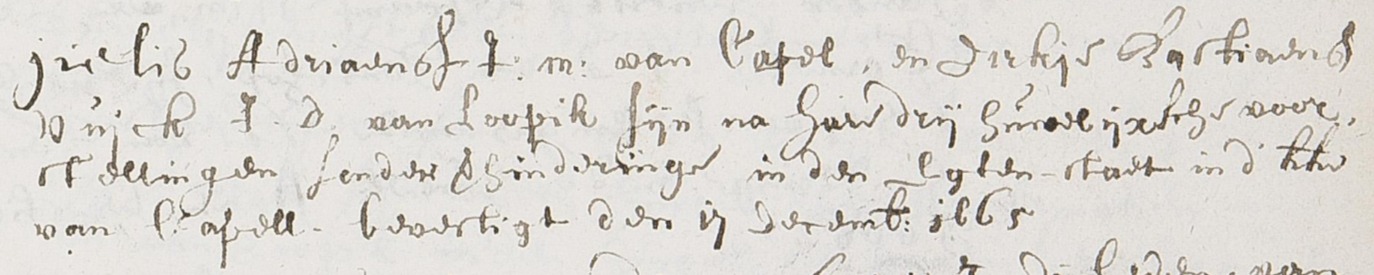 jielis Adriaensz J: m: van Capel, en Dirkje Bastiaens
Vuijck J. D. van Loopik sijn na hare drij huwelijxsche voor,
stellingen sonder verhinderinge in den Egten-staet in d' kke
van Capell. bevestigt den 17 decemb: 1665